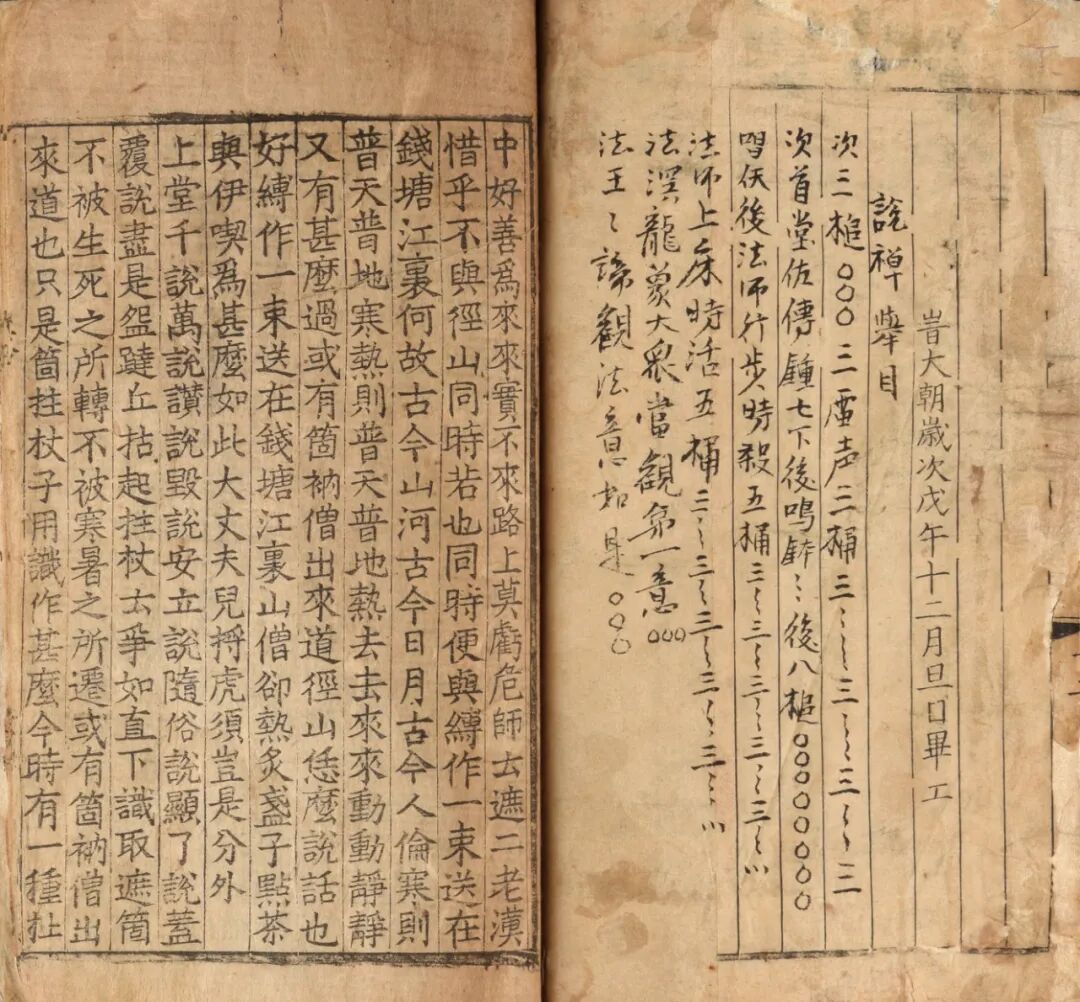 旹大朝歲次戊午十二月旦日畢工
說禪舉目
次三槌○○○三雷声三桶三
次首堂佐傳鐘七下後鳴鈸ミ後八槌○○○○○○○○
然後法师行步時殺五桶三ミ三ミ三ミ三ミ三
法师上床時活五桶三ミ三ミ三ミ三ミ三
法溟龍象大衆當觀第一意○○○
法王ミ諦觀法意如是○○○
中好善爲來來實不來路上莫虧危師去遮二老漢
惜乎不與徑山同時若也同時便與縛作一束送在
錢塘江裏何故古今山河古今日月古今人倫寒則
普天普地寒熱則普天普地熱去去來來動動靜靜
又有甚麼過或有箇衲僧出來道徑山恁麼說話也
好縛作一束送在錢塘江裏山僧卻熱炙盞子點茶
與伊喫爲甚麼如此大丈夫兒捋虎須豈是分外
上堂千說萬說讚說毀說安立說隨俗說顯了說蓋
覆說盡是盌躂丘拈起拄杖云爭如直下識取遮箇
不被生死之所轉不被寒暑之所遷或有箇衲僧出
來道也只是箇拄杖子用識作甚麼今時有一種扯